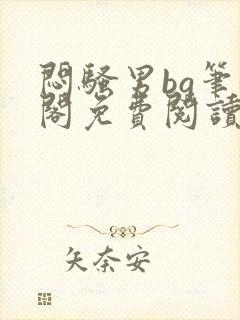 悶騷男bg筆
閣免費閱讀
矢奈安